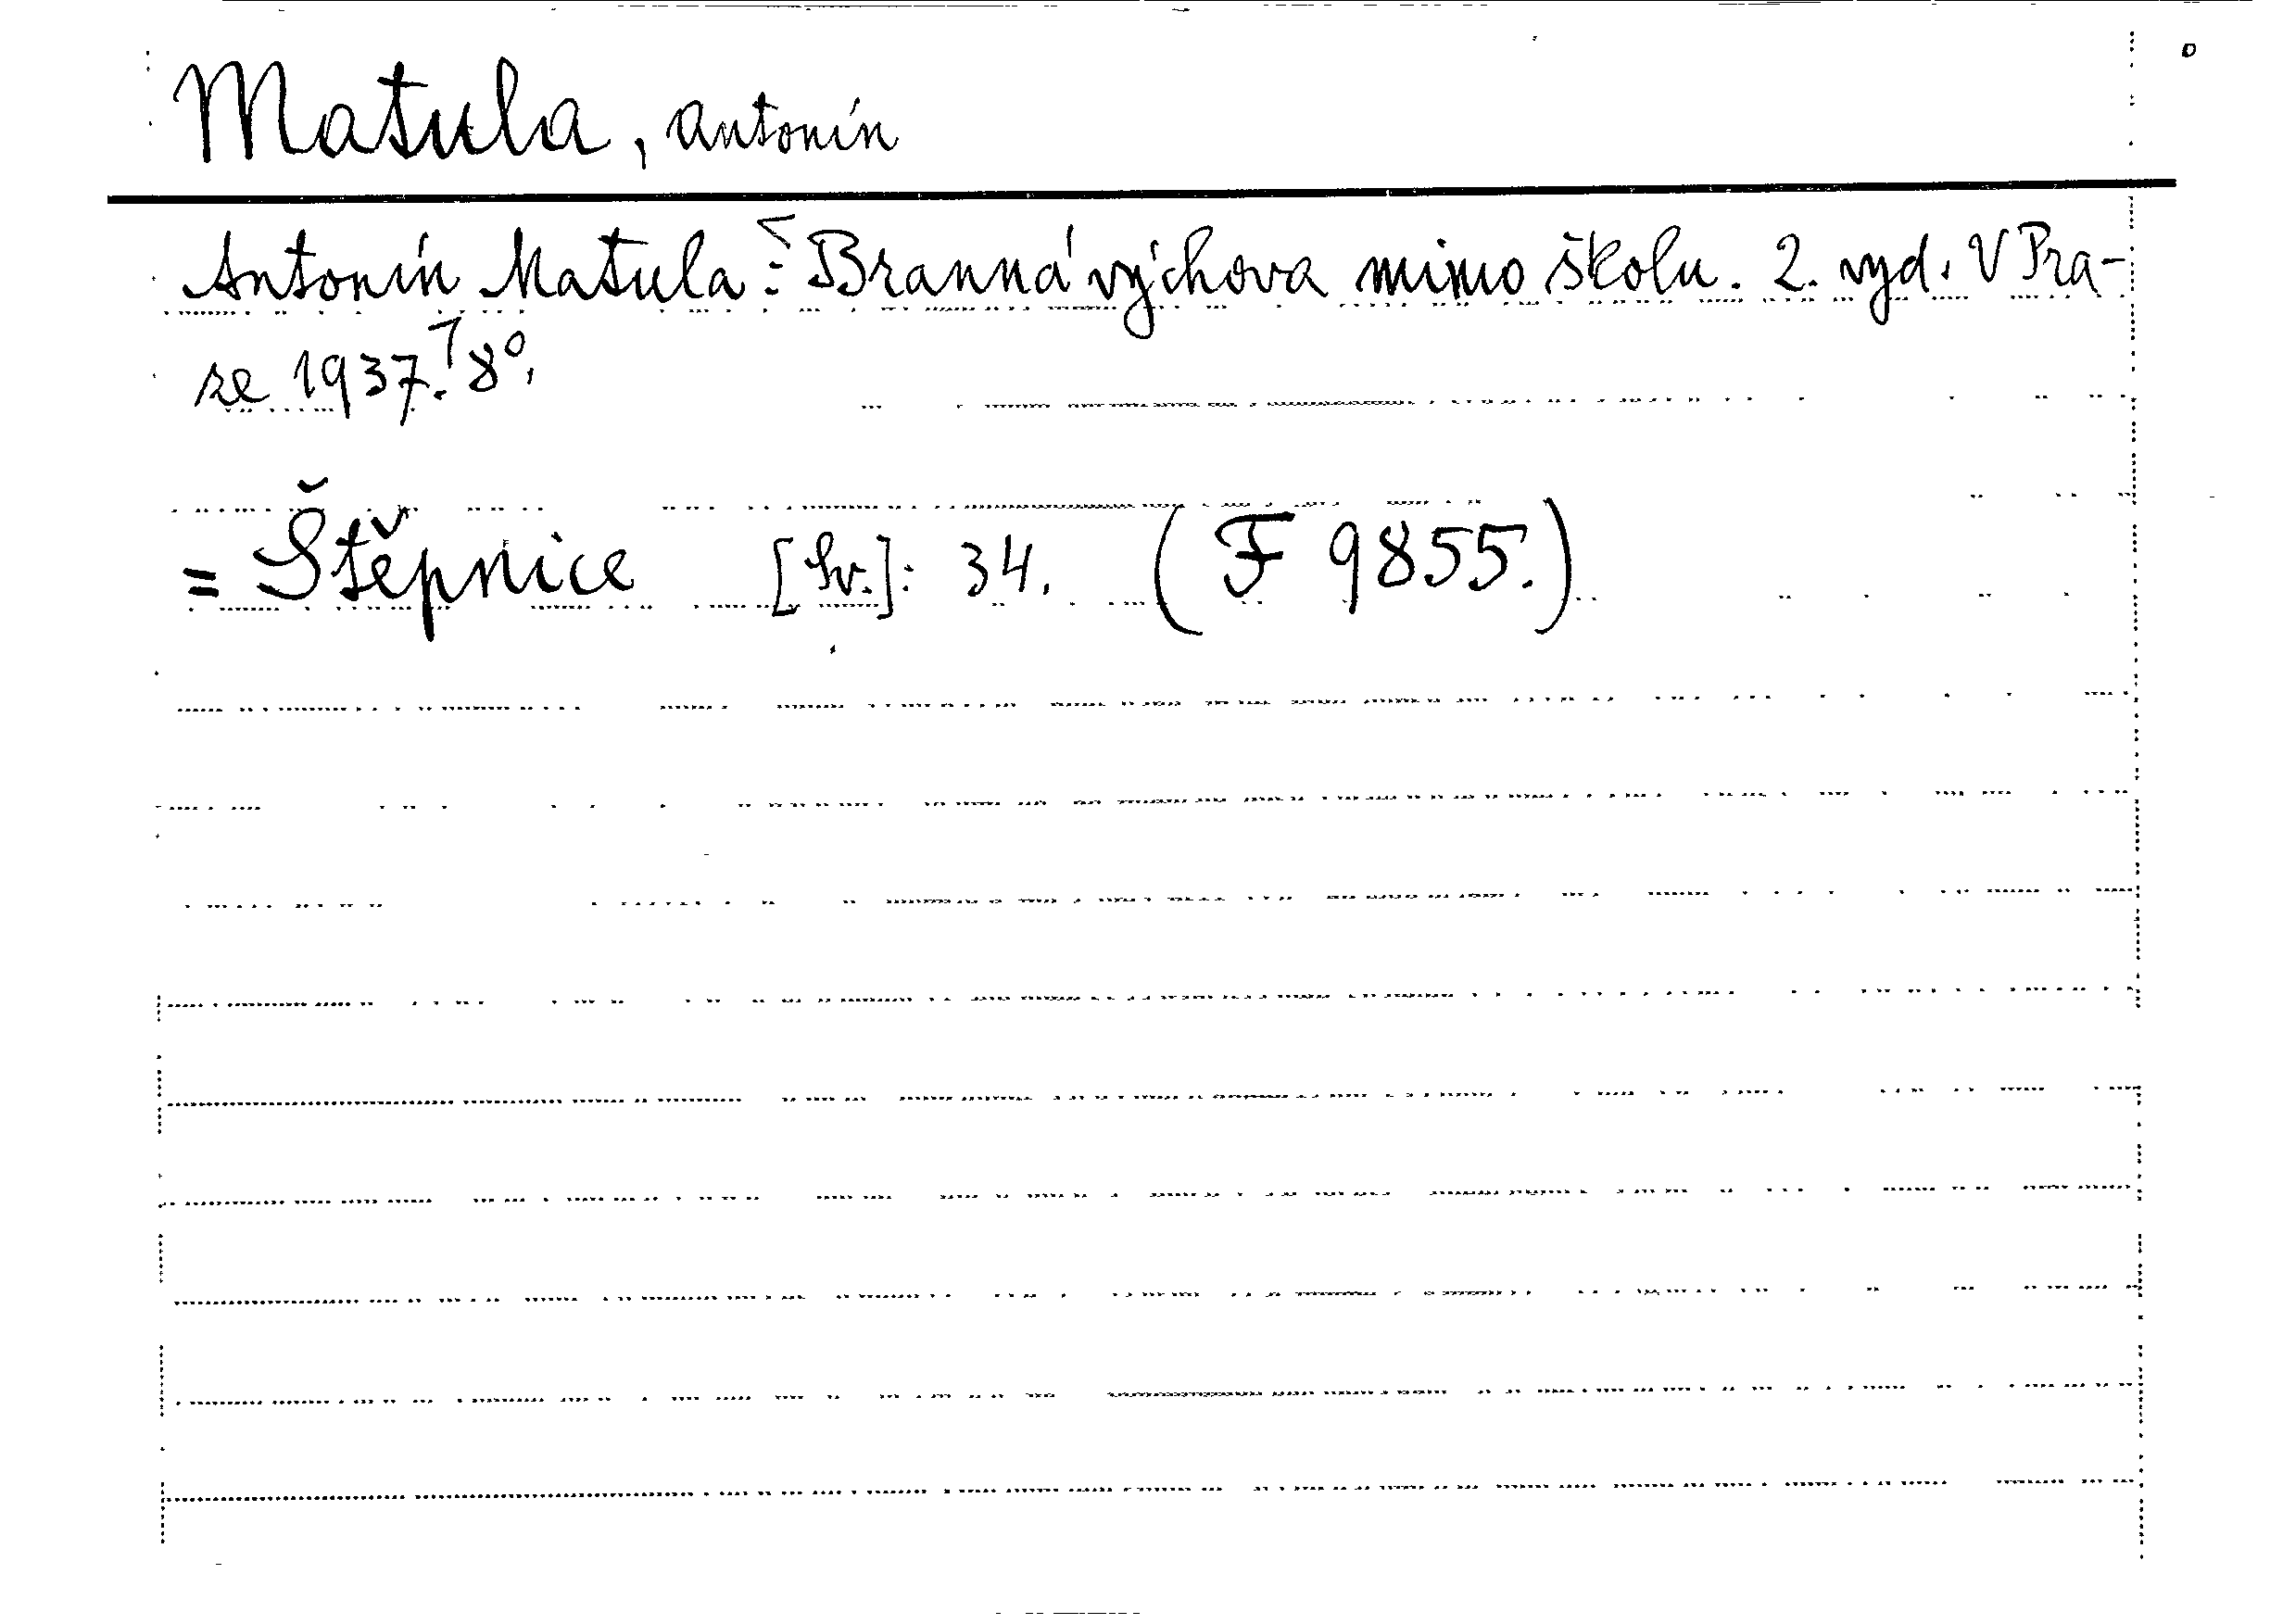 Matula, Antonín
Antonín Matula: Branná výchova mimo školu. 2. vyd. V Pra-
ze 1937. 8°.
= Štěpnice [Sv.]: 34. (F 9855.)